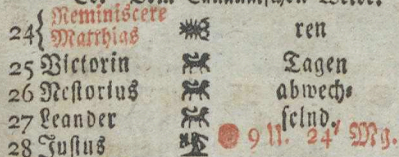 Reminiscere
24{ Matthias ren
25 Victorin Tagen
26 Nestorius abwech⸗
27 Leander selnd.
28 Justus 9 U. 24' Mg.